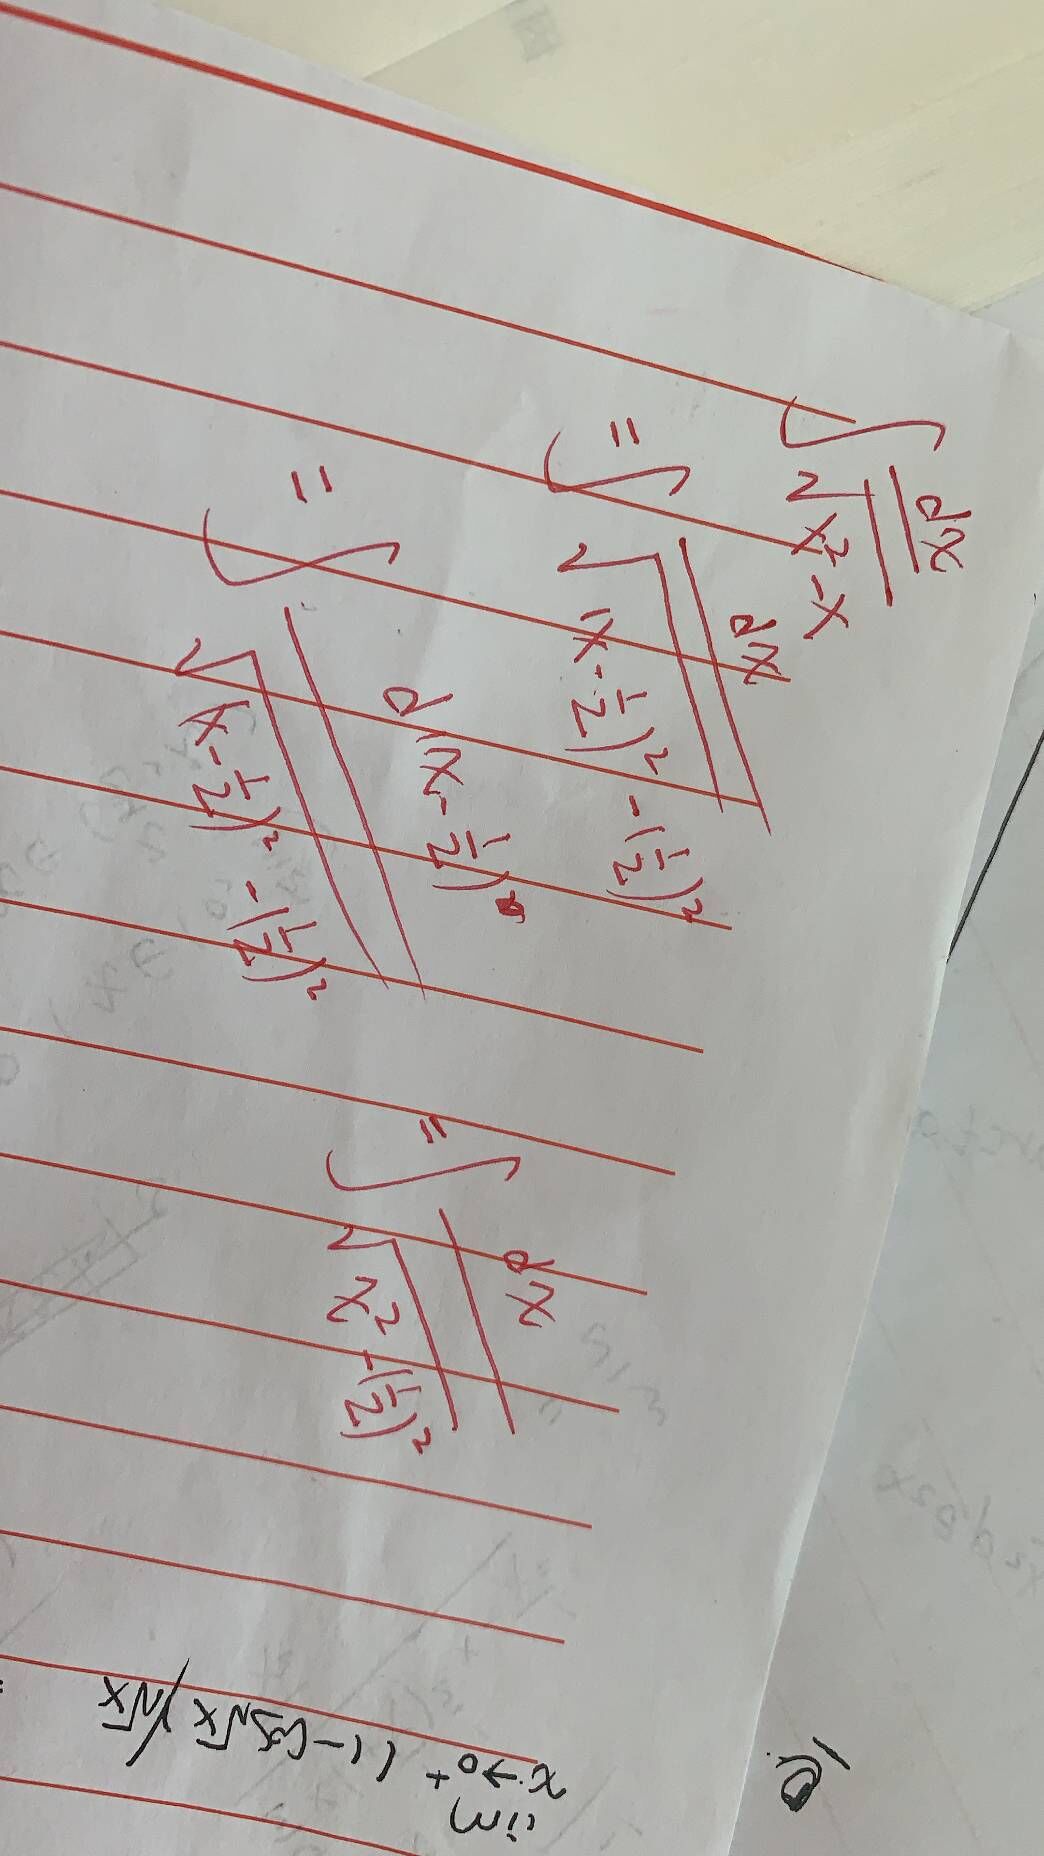 ∫ dx/√(x²-x)
= ∫ dx/√((x-1/2)²-(1/2)²)
= ∫ d(x-1/2)/√((x-1/2)²-(1/2)²)
= ∫ dx/√(x²-(1/2)²)
lim x→0⁺ (1-cos√x)/√x